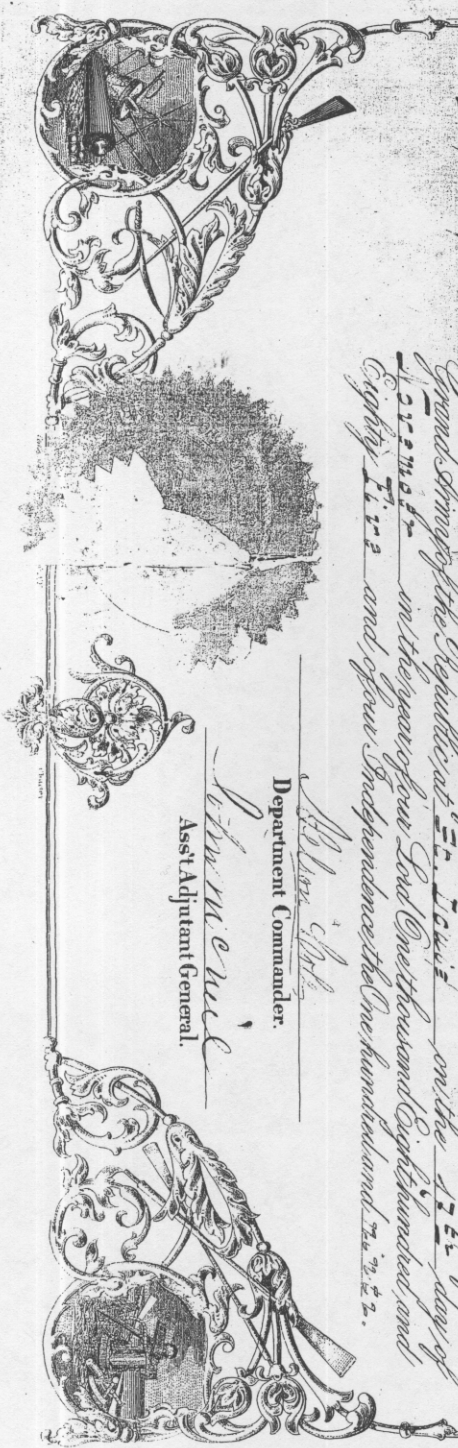 Grand Army of the Republic, at St. Louis on the 17th day of
November in the year of our Lord One thousand Eight hundred, and
Eighty Five and of our Independence the One hundred and ninth.
Nelson Cole
Department Commander.
John McNeil
Ass't Adjutant General.